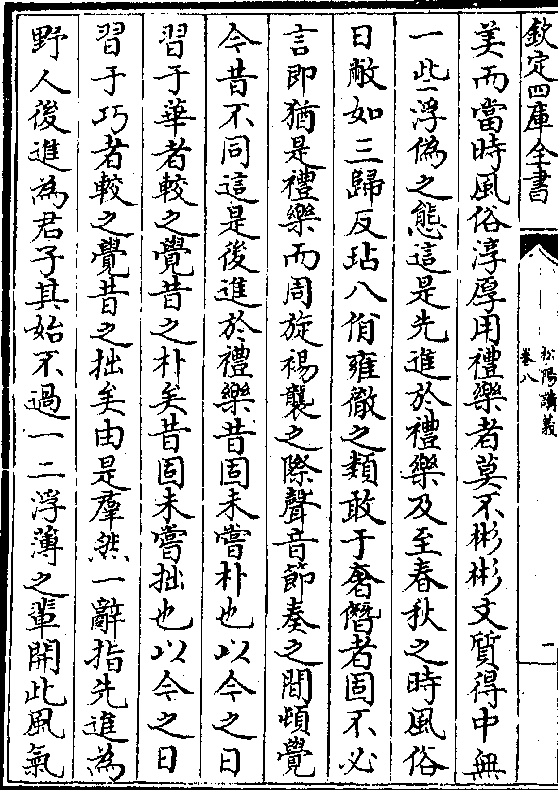 欽定四庫全書
松陽講義
卷八
一
美而當時風俗淳厚用禮樂者莫不彬彬文質得中無
一些浮偽之態這是先進於禮樂及至春秋之時風俗
日敝如三歸反玷八佾雍徹之類敢于奢僭者固不必
言即猶是禮樂而周旋裼襲之際聲音節奏之間頓覺
今昔不同這是後進於禮樂昔固未嘗朴也以今之日
習于華者較之覺昔之朴矣昔固未嘗拙也以今之日
習于巧者較之覺昔之拙矣由是羣然一辭指先進為
野人後進為君子其始不過一二浮薄之輩開此風氣